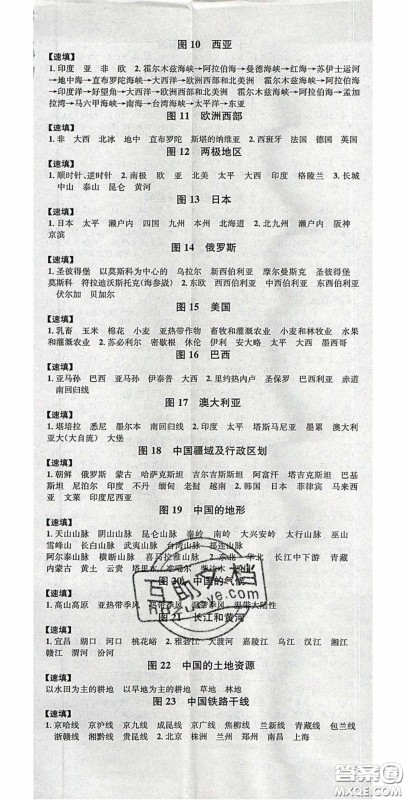 图 10　西亚
【速填】
1. 印度　亚　非　欧　霍尔木兹海峡→阿拉伯海→曼德海峡→红海→苏伊士运河
→地中海→直布罗陀海峡→大西洋→欧洲西部和北美洲　霍尔木兹海峡→阿拉伯海
→印度洋→好望角→大西洋→欧洲西部和北美洲　霍尔木兹海峡→阿拉伯海→孟加
拉湾→马六甲海峡→南海→台湾海峡→太平洋→东亚
图 11　欧洲西部
【速填】
1. 非　大西　北冰　地中　直布罗陀　斯堪的纳维亚　2. 西班牙　法国　德国　英国
图 12　两极地区
【速填】
1. 顺时针、逆时针　2. 南极　欧　亚　北美　太平　大西　印度　格陵兰　3. 长城
中山　泰山　昆仑　黄河
图 13　日本
【速填】
1. 日本　太平　濑户内　四国　九州　本州　北海道　2. 北九州　濑户内　阪神
京滨
图 14　俄罗斯
【速填】
1. 圣彼得堡　以莫斯科为中心的　乌拉尔　新西伯利亚　摩尔曼斯克　圣彼得堡
莫斯科　符拉迪沃斯托克(海参崴)　2. 东欧　西西伯利亚　中西伯利亚　东西伯利亚
伏尔加　贝加尔
图 15　美国
【速填】
1. 乳畜　玉米　棉花　小麦　亚热带作物　畜牧和灌溉农业　小麦和林牧业　水果
和灌溉农业　2. 苏必利尔　密歇根　休伦　伊利　安大略　太平　大西　墨西哥
图 16　巴西
【速填】
1. 亚马孙　巴西　亚马孙　伊泰普　大西　2. 里约热内卢　圣保罗　巴西利亚　赤道
南回归线
图 17　澳大利亚
【速填】
1. 堪培拉　悉尼　墨尔本　南回归线　2. 印度　太平　塔斯马尼亚　墨累　澳大利
亚大(大自流)　大堡
图 18　中国疆域及行政区划
【速填】
1. 朝鲜　俄罗斯　蒙古　哈萨克斯坦　吉尔吉斯斯坦　阿富汗　塔吉克斯坦　巴基
斯坦　尼泊尔　印度　不丹　缅甸　老挝　越南　2. 韩国　日本　菲律宾　马来西
亚　文莱　印度尼西亚
图 19　中国的地形
【速填】
1. 天山山脉　阴山山脉　昆仑山脉　秦岭　南岭　大兴安岭　太行山脉　巫山
雪峰山　长白山脉　武夷山脉　台湾山脉　祁连山脉
阿尔泰山脉　横断山脉　喜马拉雅山脉　2. 东北　华北　长江中下游　青藏
内蒙古　黄土　云贵　塔里木　准噶尔　柴达木
图 20　中国的气候
【速填】
1. 高山高原　亚热带季风　热带季风　温带季风　温带大陆性
图 21　长江和黄河
【速填】
1. 宜昌　湖口　河口　桃花峪　2. 雅砻江　大渡河　嘉陵江　乌江　汉江　湘江
赣江　渭河　汾河
图 22　中国的土地资源
【速填】
以水田为主的耕地　以旱地为主的耕地　草地　林地
图 23　中国铁路干线
【速填】
1. 京哈线　京沪线　京九线　成昆线　京广线　焦柳线　兰新线　青藏线　包兰线
浙赣线　湘黔线　贵昆线　2. 北京　株洲　兰州　郑州　南昌　上海
互助文档
www.zuyew.com
答案圈
MXQE.COM